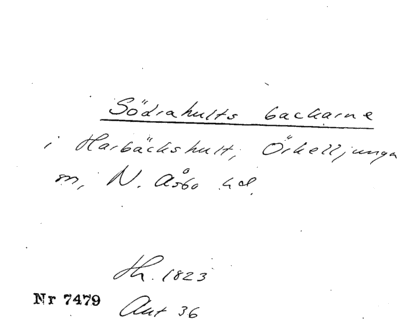 Södrahults backarne
i Harbäckshult, Örkelljunga
m, N. Åsbo hd.
Th. 1823
Nr 7479
Ant 36